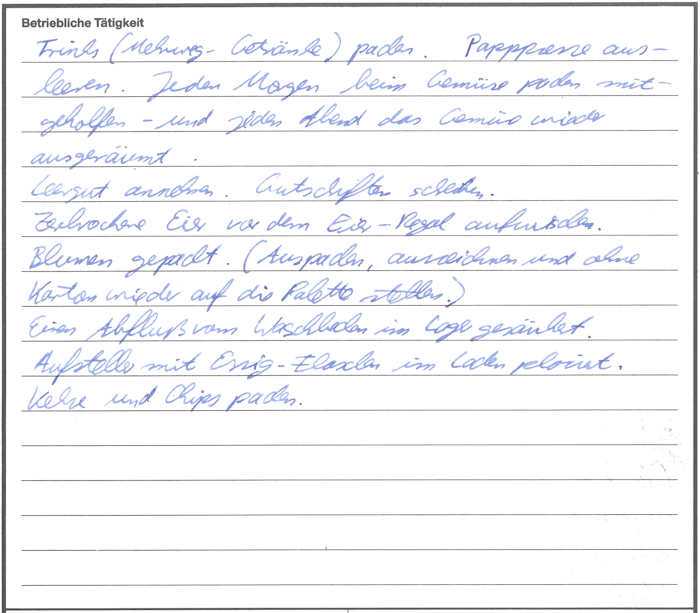 Betriebliche Tätigkeit
Trinks (Mehrweg-Getränke) packen. Papppresse aus-
leeren. Jeden Morgen beim Gemüse packen mit-
geholfen - und jeden Abend das Gemüse wieder
ausgeräumt.
Leergut annehmen. Gutschriften schreiben.
Zerbrochene Eier vor dem Eier-Regal aufwischen.
Blumen gepackt. (Auspacken, auszeichnen und ohne
Karton wieder auf die Palette stellen.)
Einen Abfluß vom Waschbecken im Lager gesäubert.
Aufsteller mit Essig-Flaschen im Laden platziert.
Kekse und Chips packen.